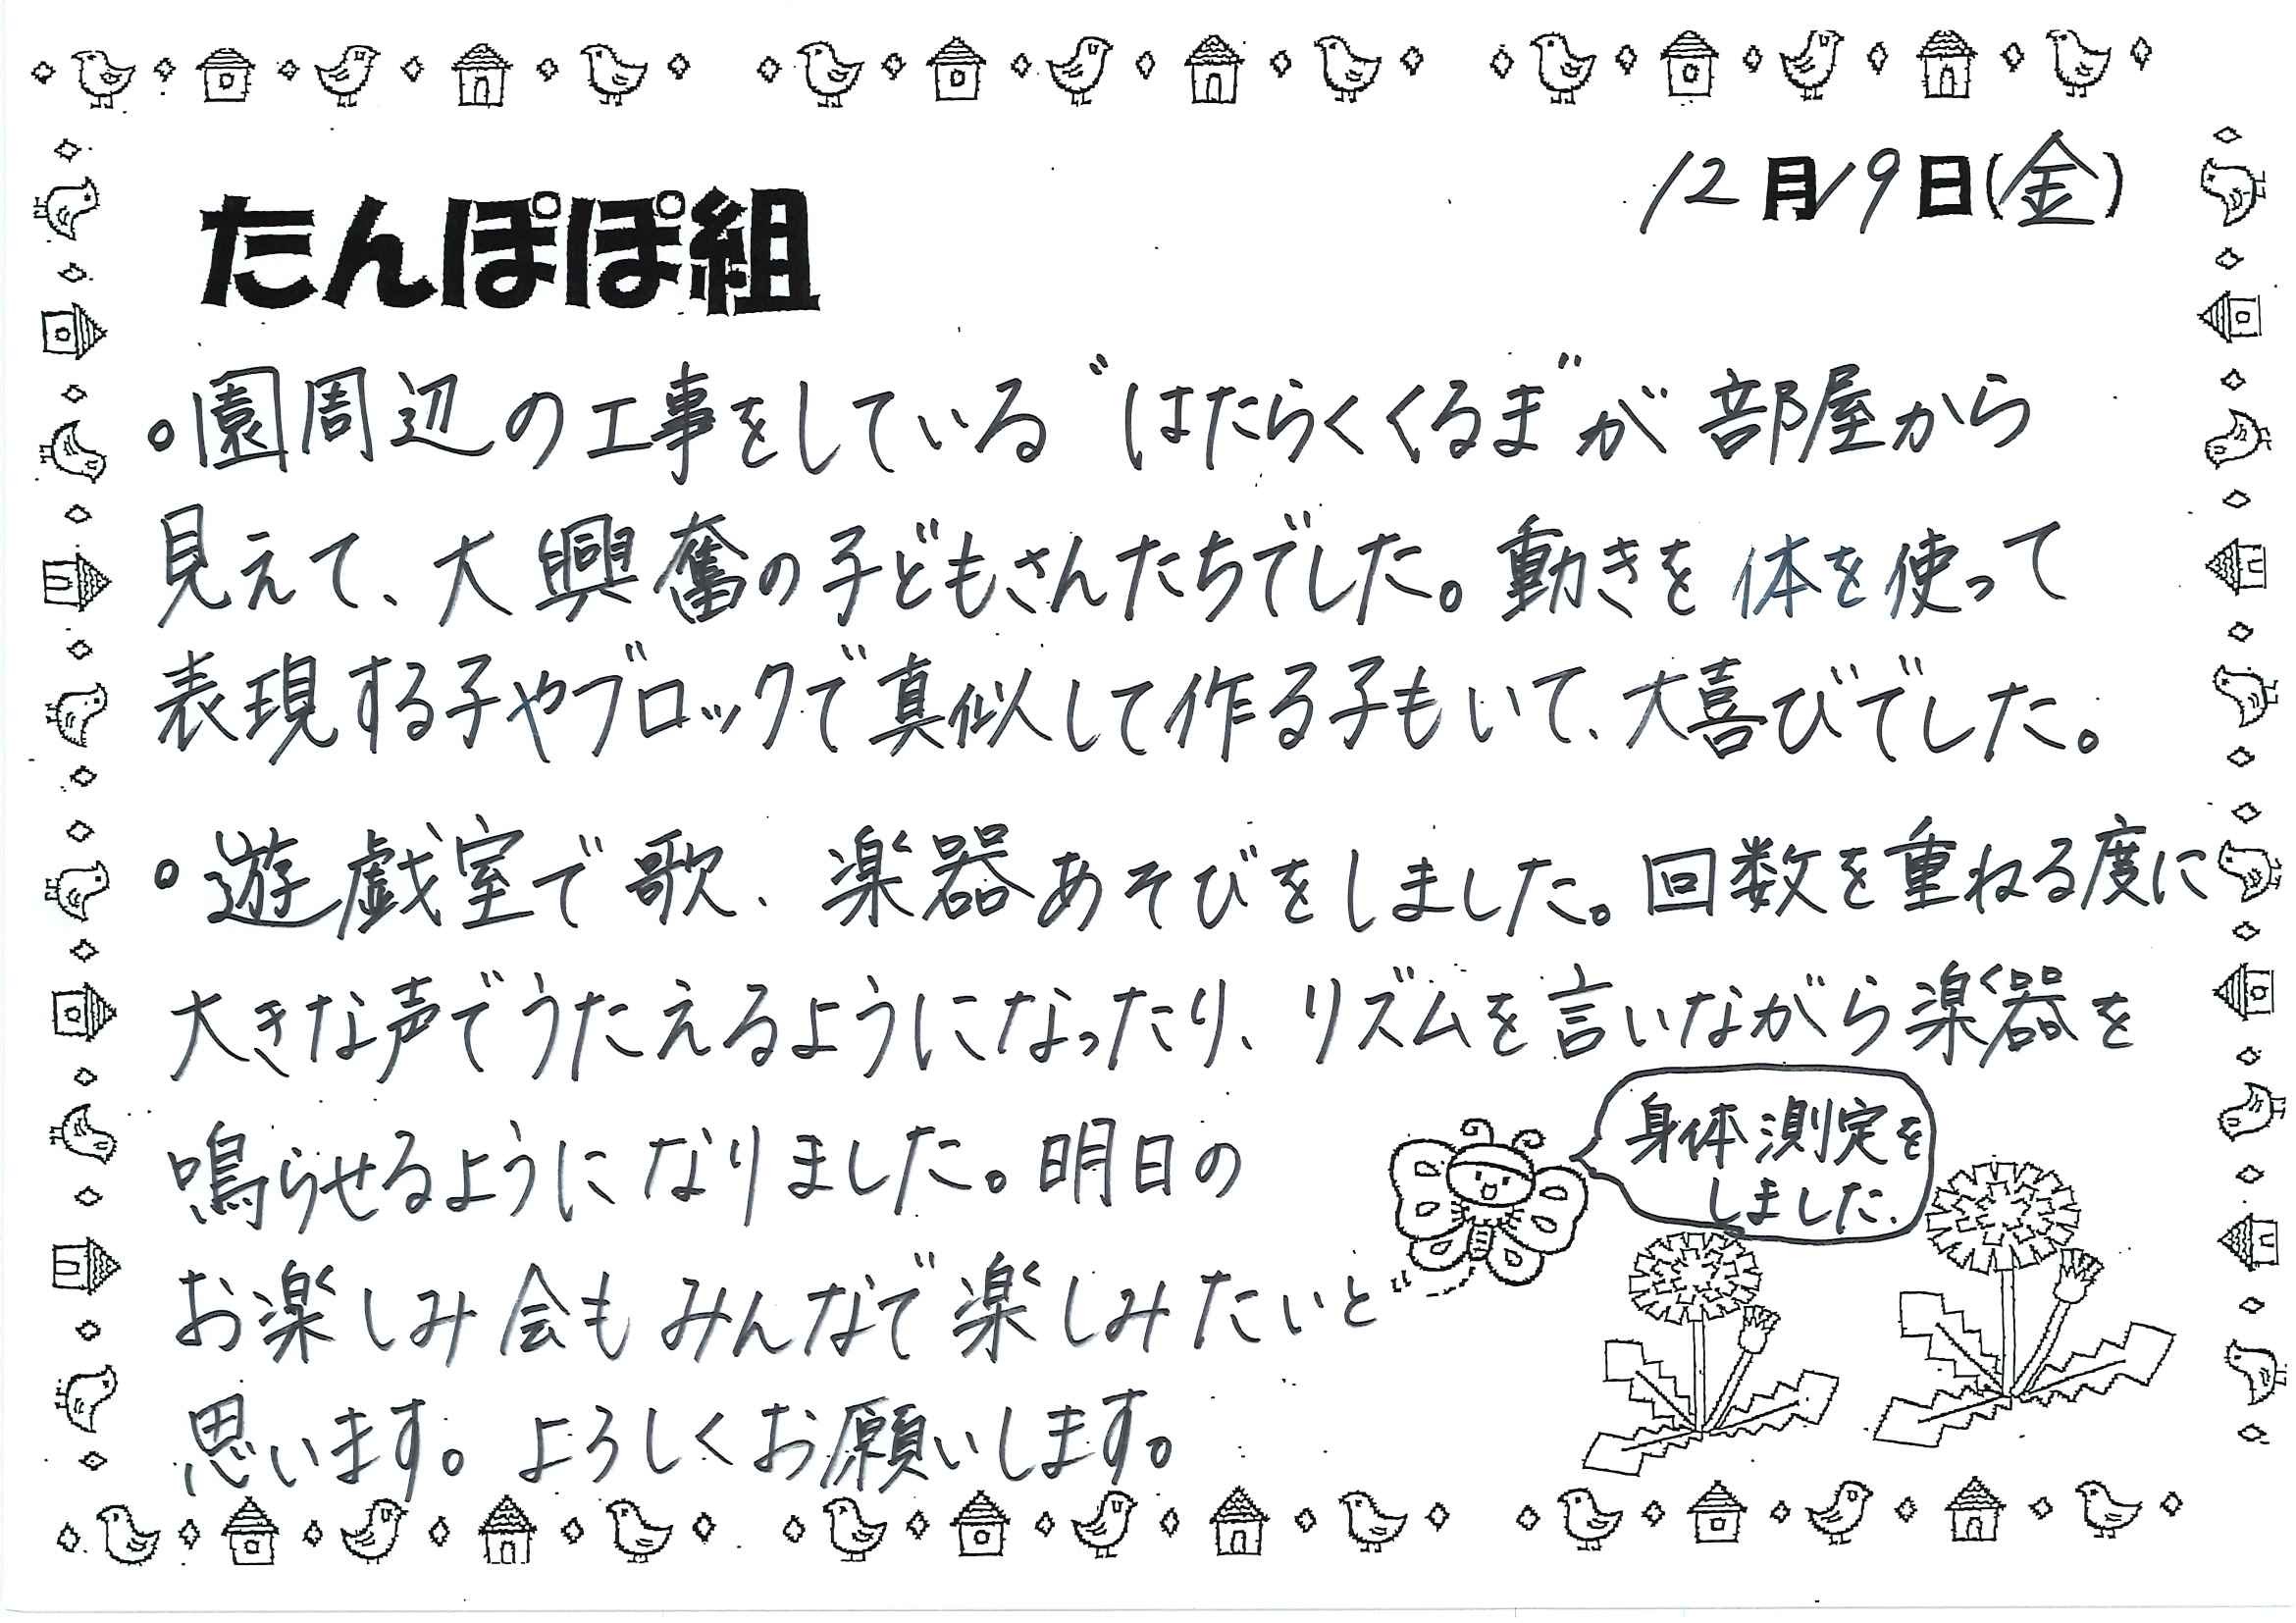 12月19日(金)
たんぽぽ組
○園周辺の工事をしている"はたらくくるま"が部屋から
見えて、大興奮の子どもさんたちでした。動きを体を使って
表現する子やブロックで真似して作る子もいて、大喜びでした。
○遊戯室で歌、楽器あそびをしました。回数を重ねる度に
大きな声でうたえるようになったり、リズムを言いながら楽器を
鳴らせるようになりました。明日の
お楽しみ会もみんなで楽しみたいと
思います。よろしくお願いします。
身体測定を
しました。